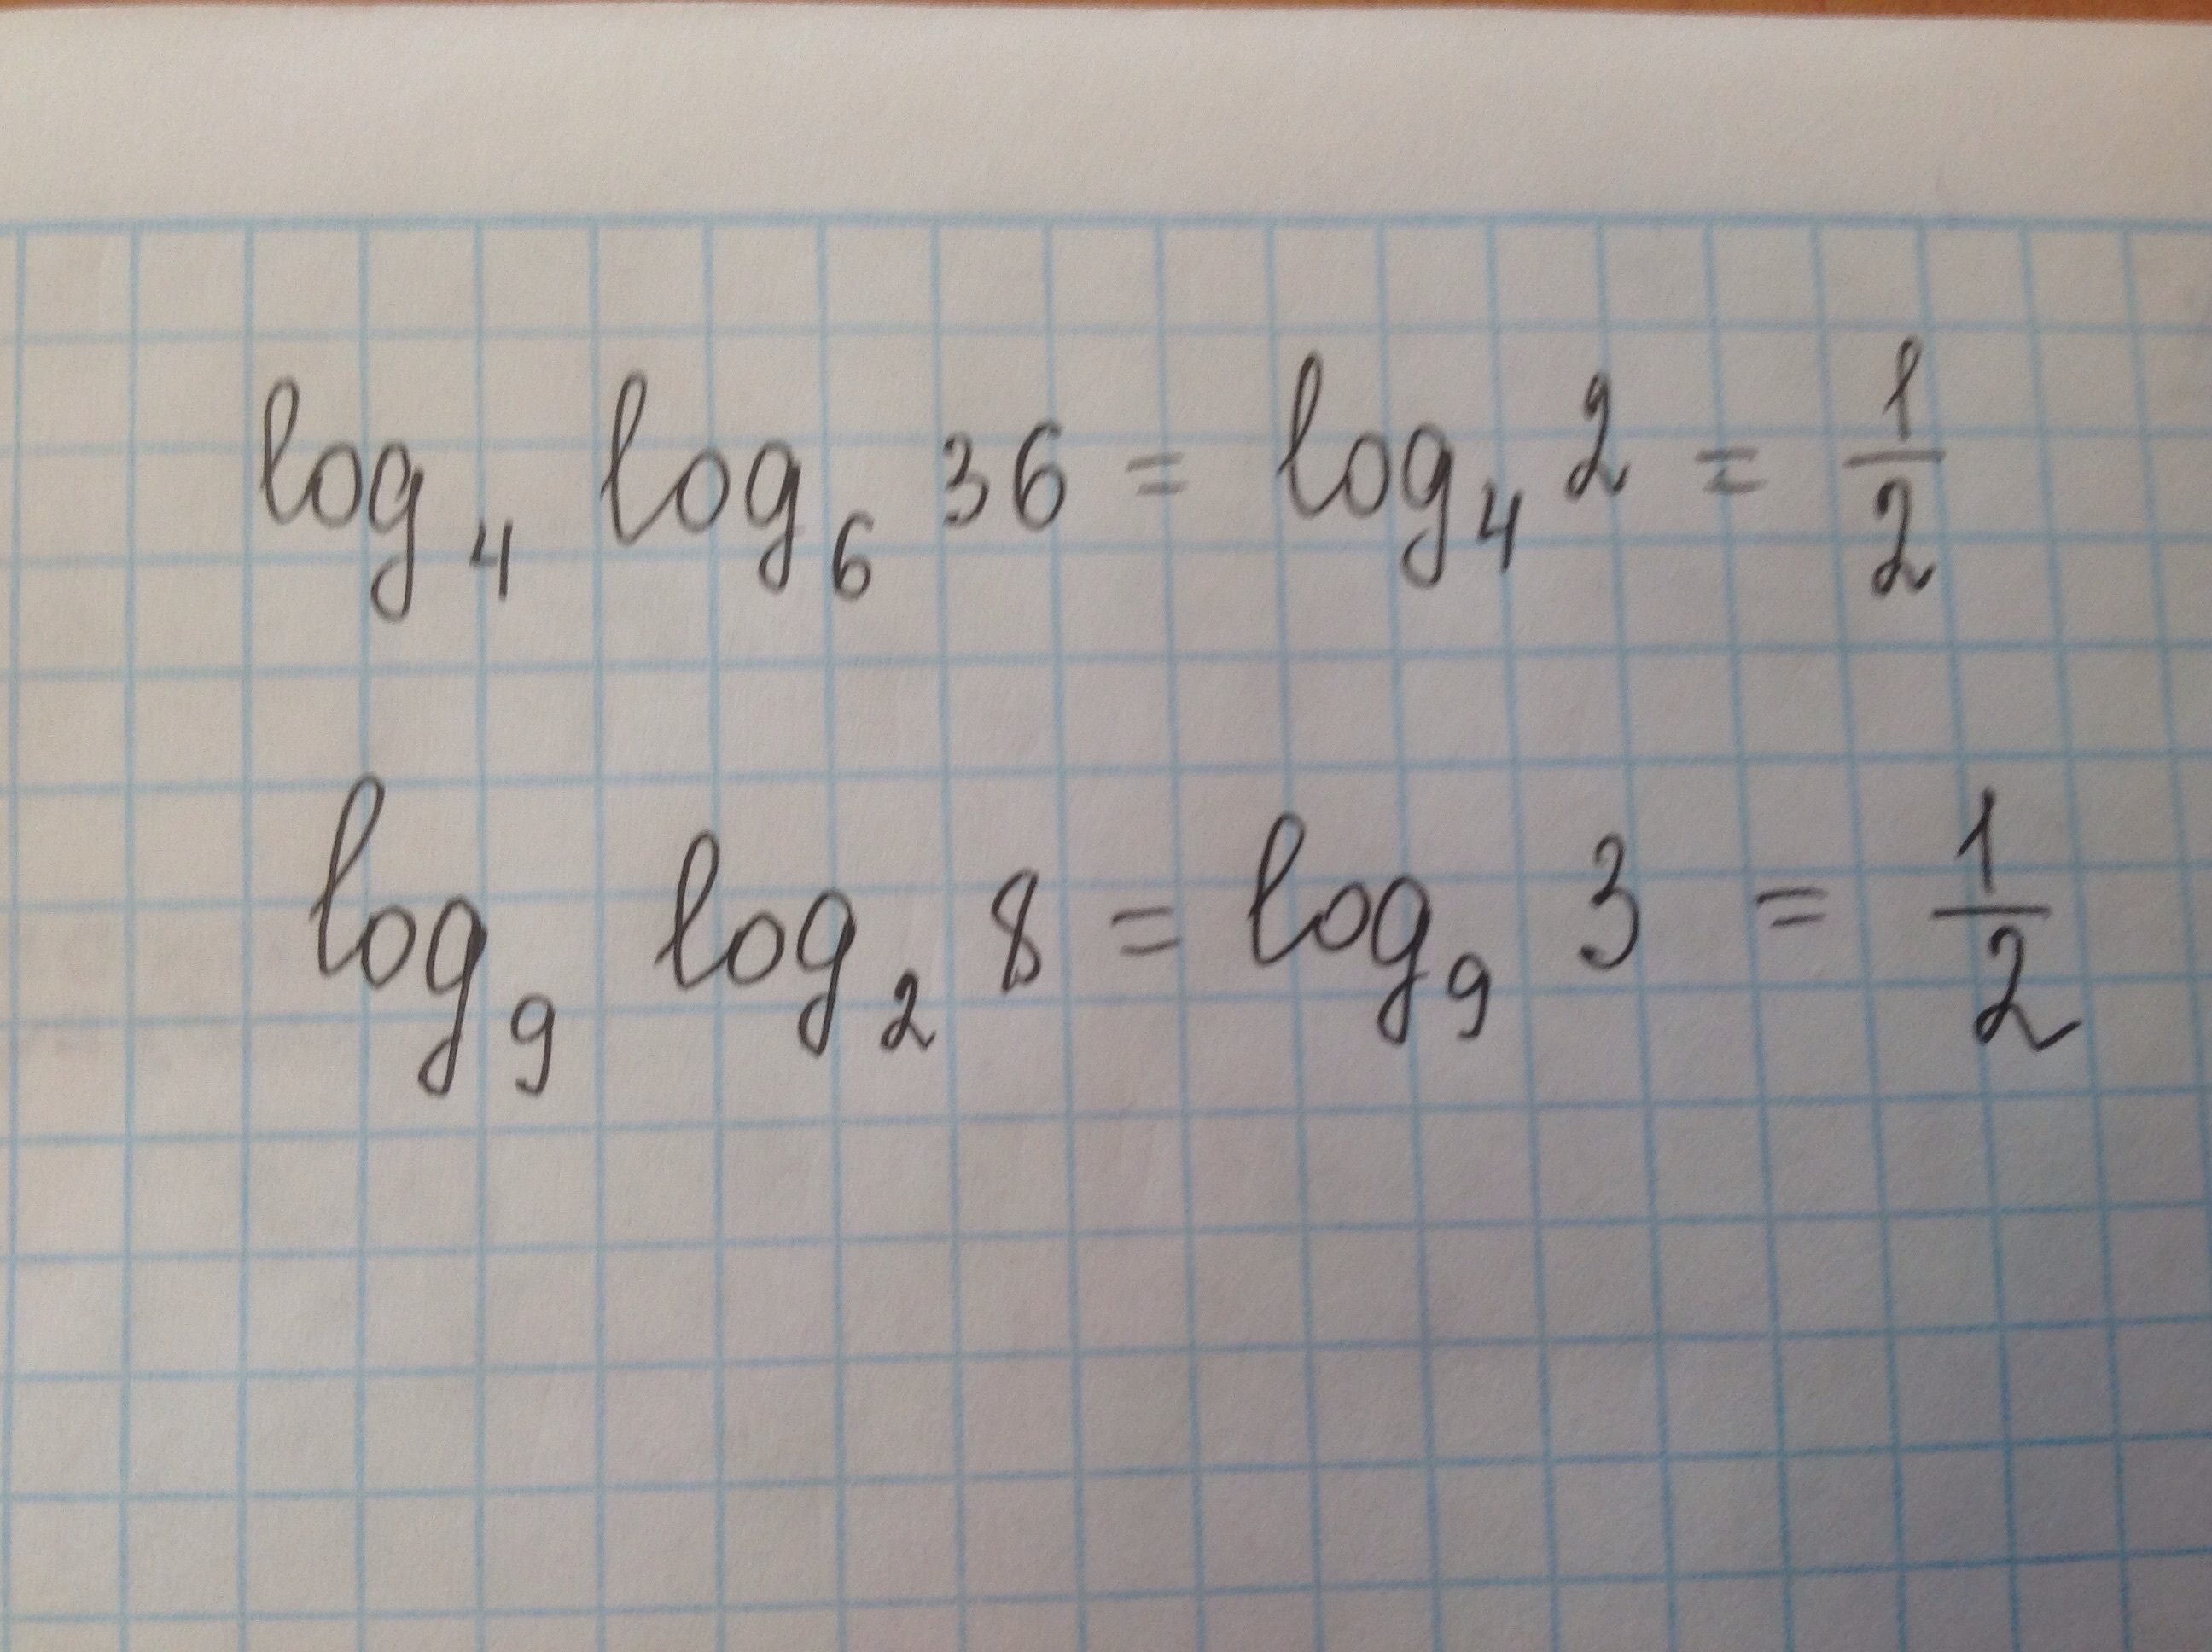 log₄ log₆ 36 = log₄ 2 = 1/2
log₉ log₂ 8 = log₉ 3 = 1/2